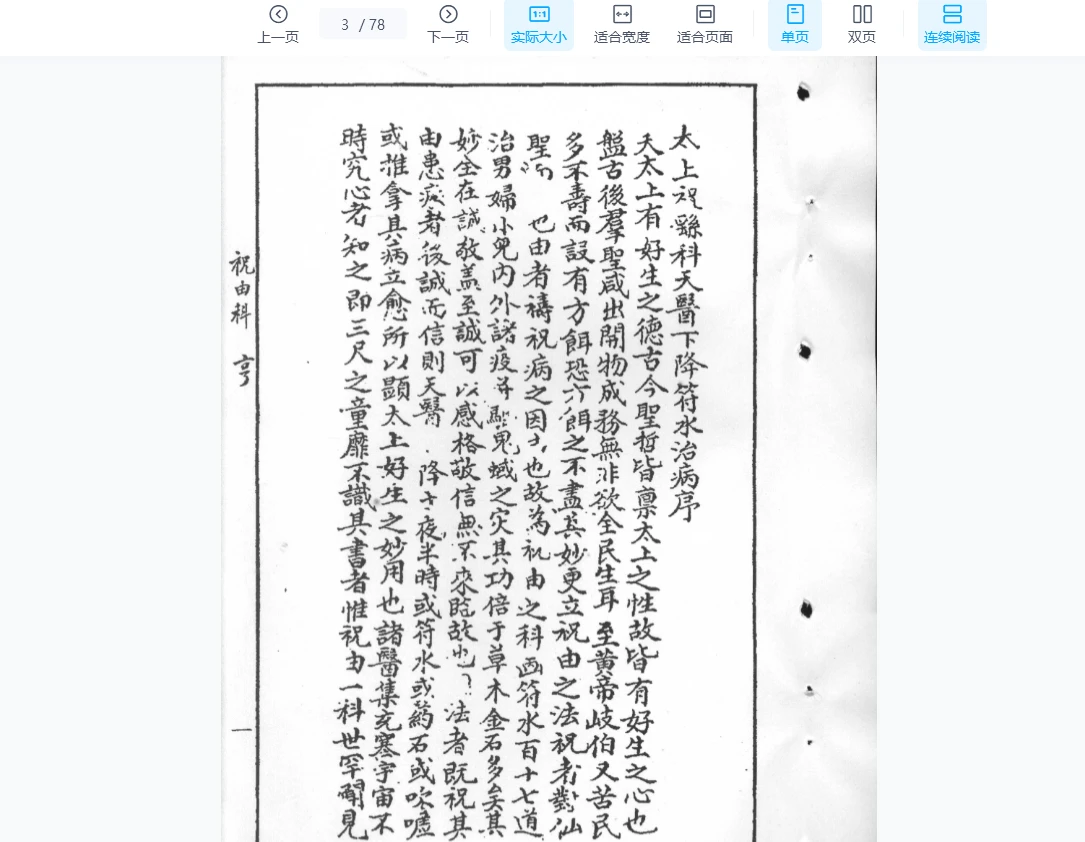 上一页
3 / 78
下一页
1:1
实际大小
适合宽度
适合页面
单页
双页
连续阅读
太上祝繇科天醫下降符水治病序
夭太上有好生之德古今聖哲皆禀太上之性故皆有好生之心也
盤古後羣聖咸出開物成務無非欲全民生耳至黄帝岐伯又苦民
多不壽而設有方餌恐方餌之不盡其妙更立祝由之法祝者對仙
聖 也由者禱祝病之因 也故為祝由之科画符水百十七道
治男婦小兒内外諸疫并 鬼蜮之灾其功倍于草木金石多矣其
妙全在誠敬盖至誠可以感格敬信無不來 故也 法者既祝其
由患疾者後誠而信則天醫 降 夜半時或符水或葯石或吹噓
或推拿其病立愈所以顯太上好生之妙用也諸醫集充塞宇宙不
時究心者知之即三尺之童靡不識其書者惟祝由一科世罕聞見
祝由科 亨
一